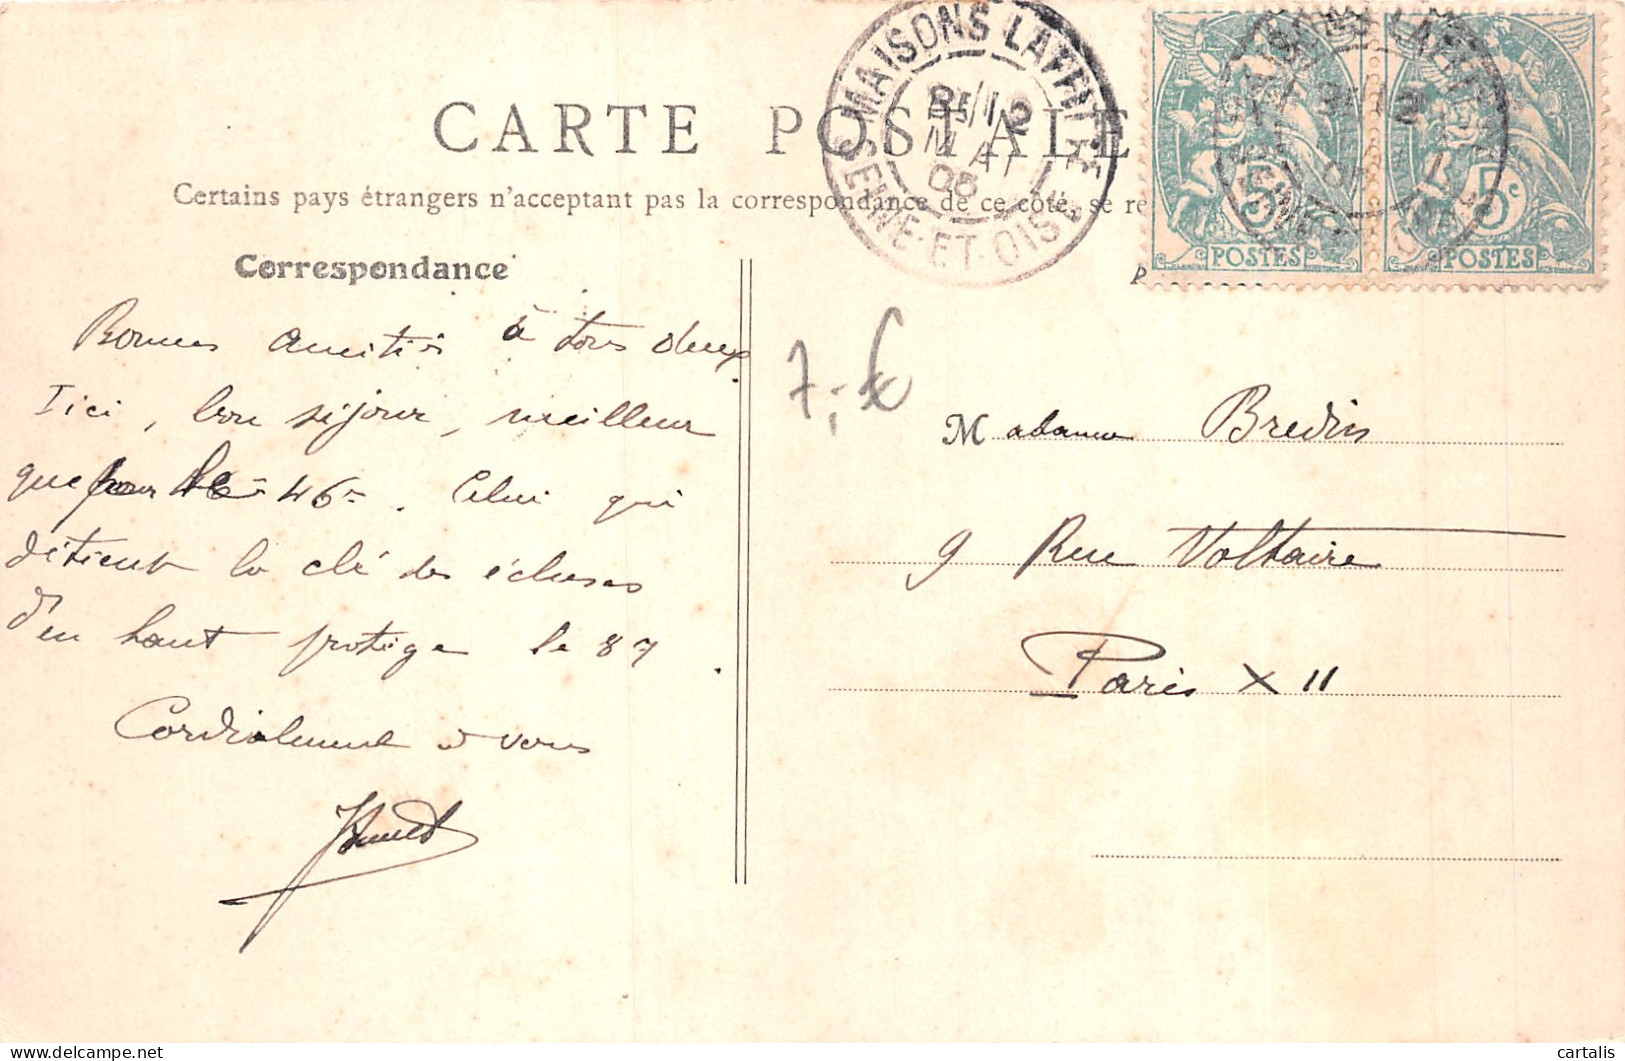 CARTE POSTALE
Certains pays étrangers n'acceptant pas la correspondance de ce côté, se re
Correspondance
MAISONS LAFFITTE
SEINE-ET-OISE
5c
POSTES
5c
POSTES
Bonnes amitiés à tous deux.
Ici, bon séjour, meilleur
que pour le 46. Celui qui
détient la clé des écluses
d'en haut protège le 87.
Cordialement à vous
7,-€
Madame Bredin
9 Rue Voltaire
Paris XII
cartalis